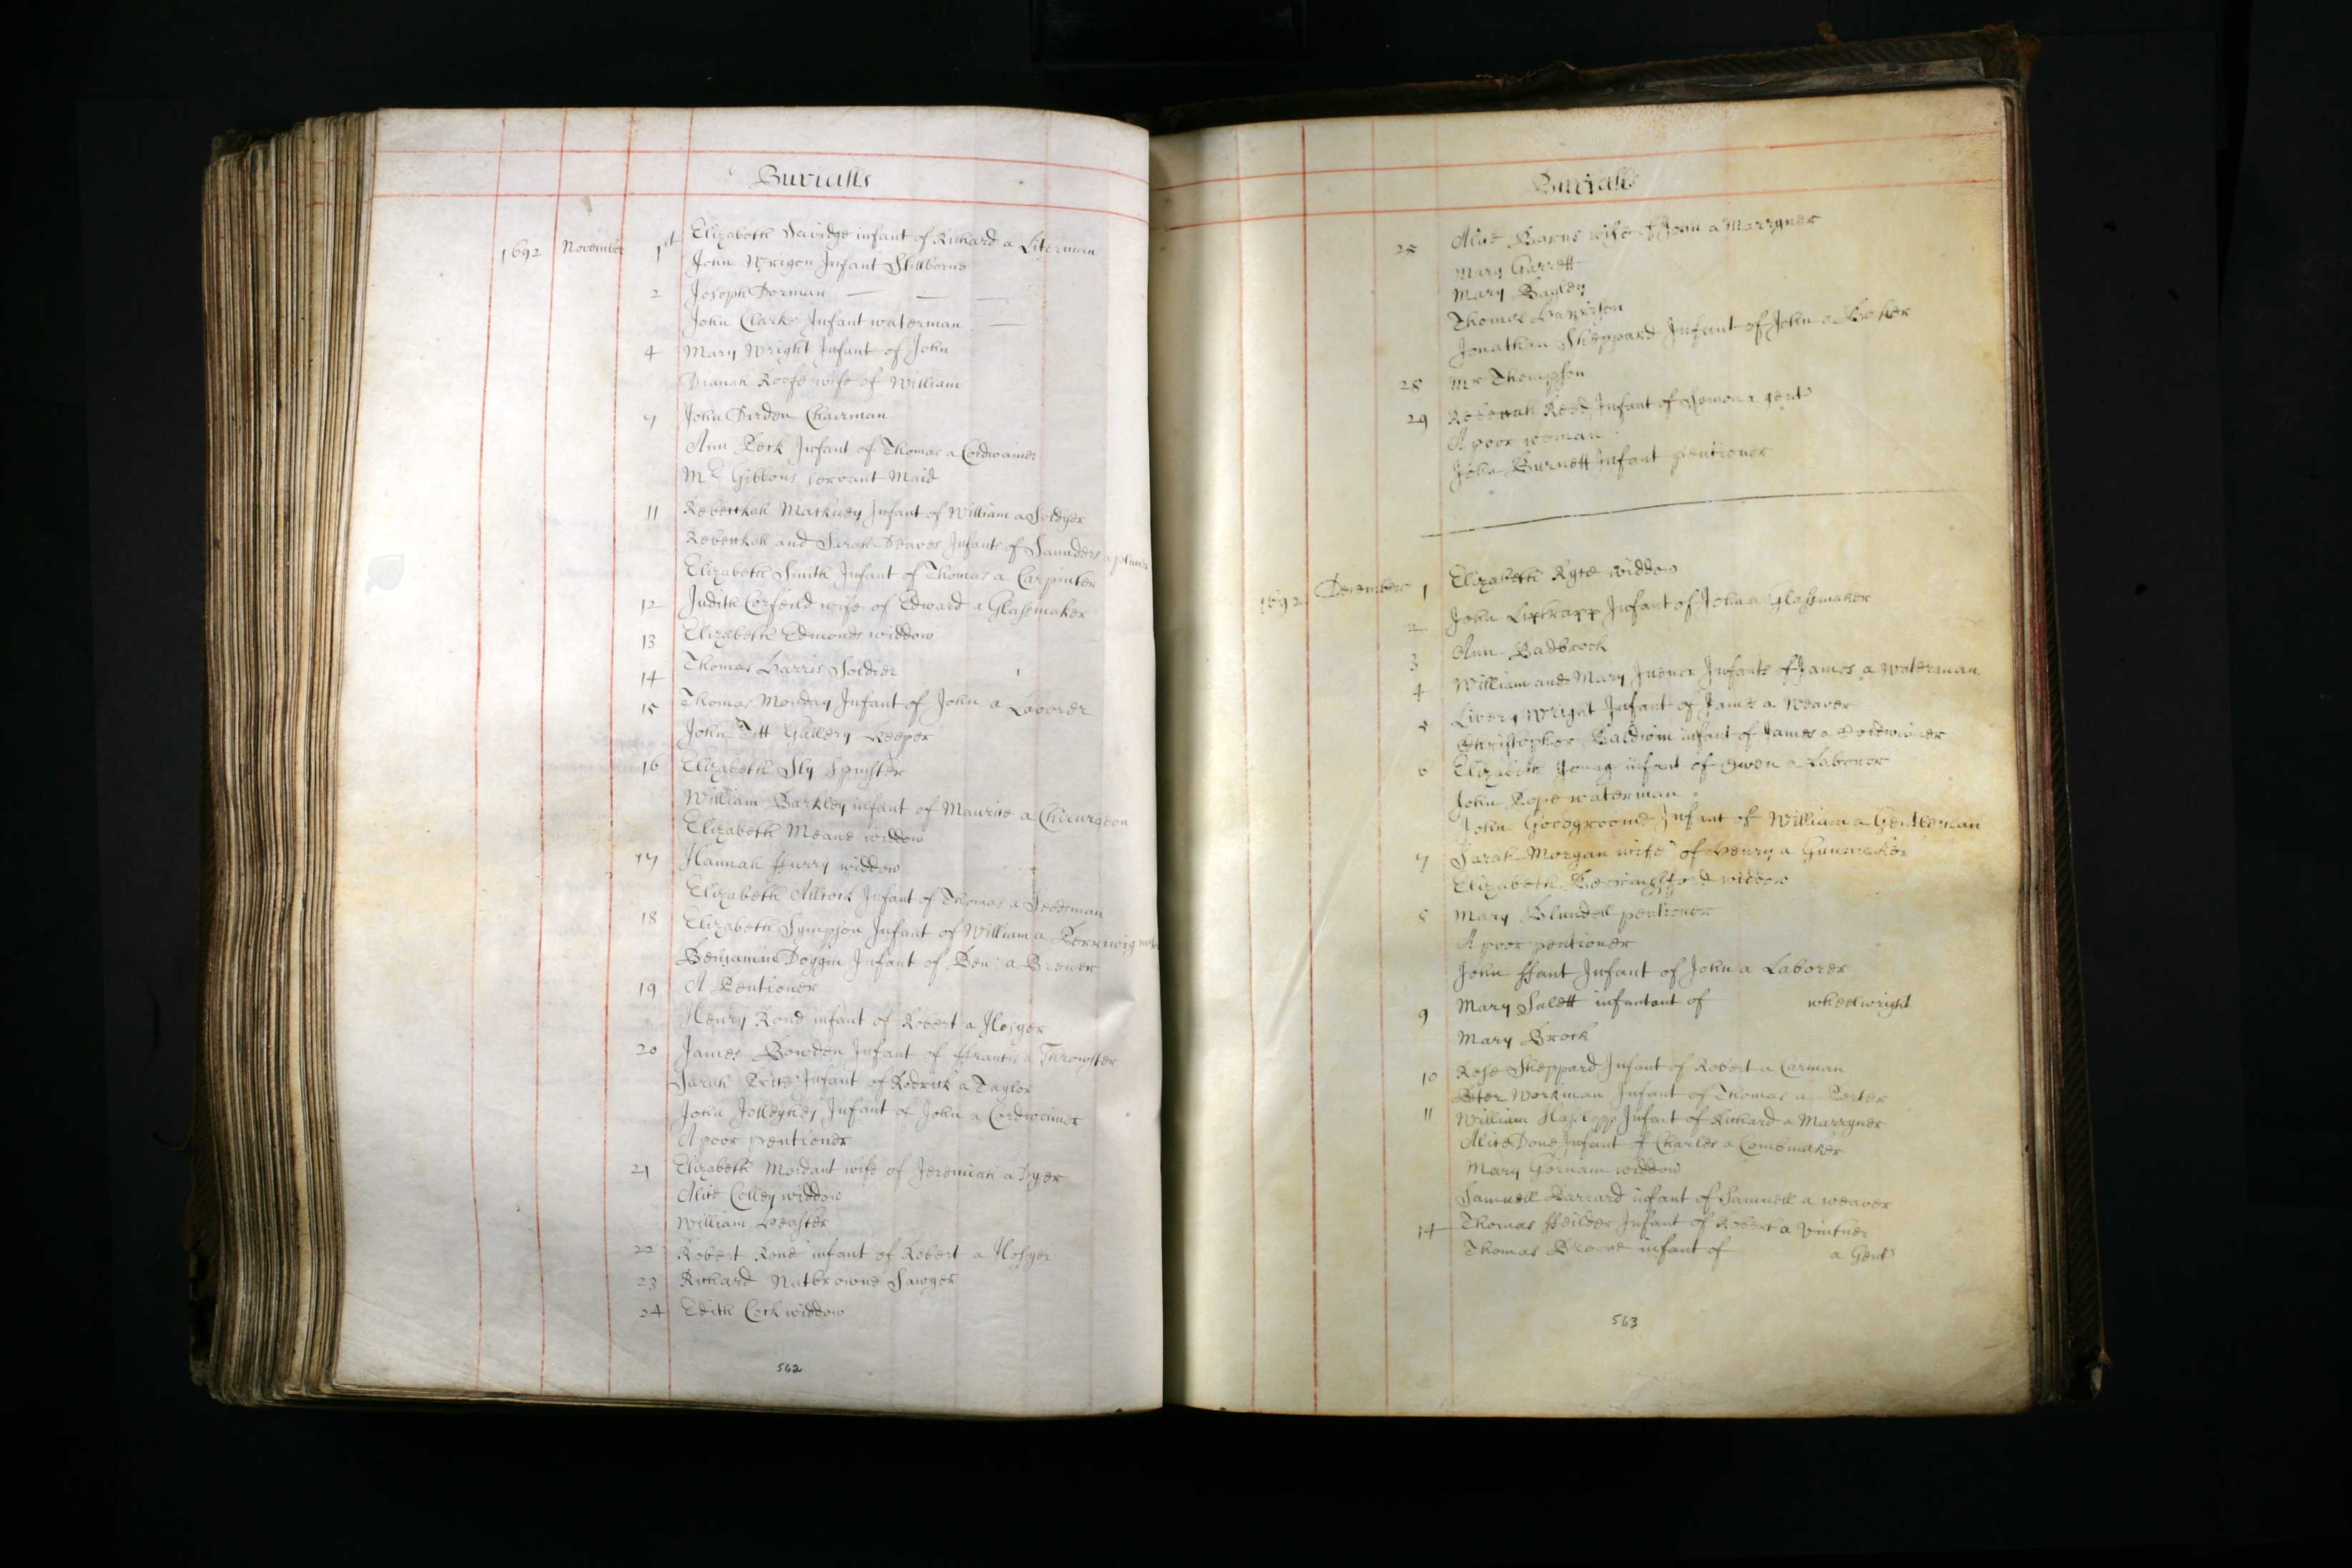 Burialls
1692 November 1st Elizabeth Savidge infant of Richard a Literman
John Wrigon Infant Stillborne
2 Joseph Dorman
John Clarke Infant waterman
4 Mary Wright Infant of John
Dianah Roofe wife of William
7 John Dirden Chairman
Ann Peck Infant of Thomas a Cordwainer
Mr Gibbons servant Maid
11 Rebeckah Markney Infant of William a Soldyer
Rebeckah and Sarah Deaves Infants of Saunders a
Elizabeth Smith Infant of Thomas a Carpinter
12 Judith Corfeild wife of Edward a Glassmaker
13 Elizabeth Edmonds widdow
14 Thomas Harris Soldier
15 Thomas Monday Infant of John a Laborer
John Titt Gallery Keeper
16 Elizabeth Sly Spinster
William Barkley infant of Maurice a Chirurgeon
Elizabeth Meane widdow
17 Hannah ffurry widdow
Elizabeth Allcock Infant of Thomas a Seedsman
18 Elizabeth Sympson Infant of William a Perriwig
Benjamin Doggin Infant of Ben: a Brewer
19 A Pentioner
Henry Rond infant of Robert a Hosyer
20 James Bowden Infant of ffrancis a Throwster
Sarah Price Infant of Rodrick a Taylor
John Infant of John a Cordwainer
A poor pentioner
21 Elizabeth Mordant wife of Jeremiah a Dyer
Alice Colley widdow
William Heaster
22 Robert Rond infant of Robert a Hosyer
23 Richard Natbrowne Sawyer
24 Edith Cock widdow
562
Burialls
25 Alice Barns wife of John a Marryner
Mary Garrett
Mary Bayley
Thomas Harrison
Jonathan Sheppard Infant of John a Baker
28 Mr Thompson
29 Rebeckah Reed Infant of Semon a gent
A poor woman
John Burnett Infant pentioner
1692 December 1 Elizabeth Ryce widdow
2 John Infant of John a Glassmaker
3 Ann Badbrook
4 William and Mary Infants of James a waterman
5 Livery Wright Infant of James a Weaver
Christopher Baldwin infant of James a Cordwainer
6 Elizabeth Young infant of Owen a Laborer
John Pope waterman
John Goodgroome Infant of William a Gentleman
7 Sarah Morgan wife of Henry a Gunmaker
Elizabeth widdow
8 Mary Blundell pentioner
A poor pentioner
John ffant Infant of John a Laborer
9 Mary Salett infantant of wheelwright
Mary Brock
10 Rose Sheppard Infant of Robert a Carman
Peter Workman Infant of Thomas a Porter
11 William Haslopp Infant of Richard a Marryner
Alice Done Infant of Charles a Combmaker
Mary Gornam widdow
Samuell Barrard infant of Samuell a weaver
14 Thomas ffeilder Infant of Robert a Vintner
Thomas Browne infant of a Gent
563